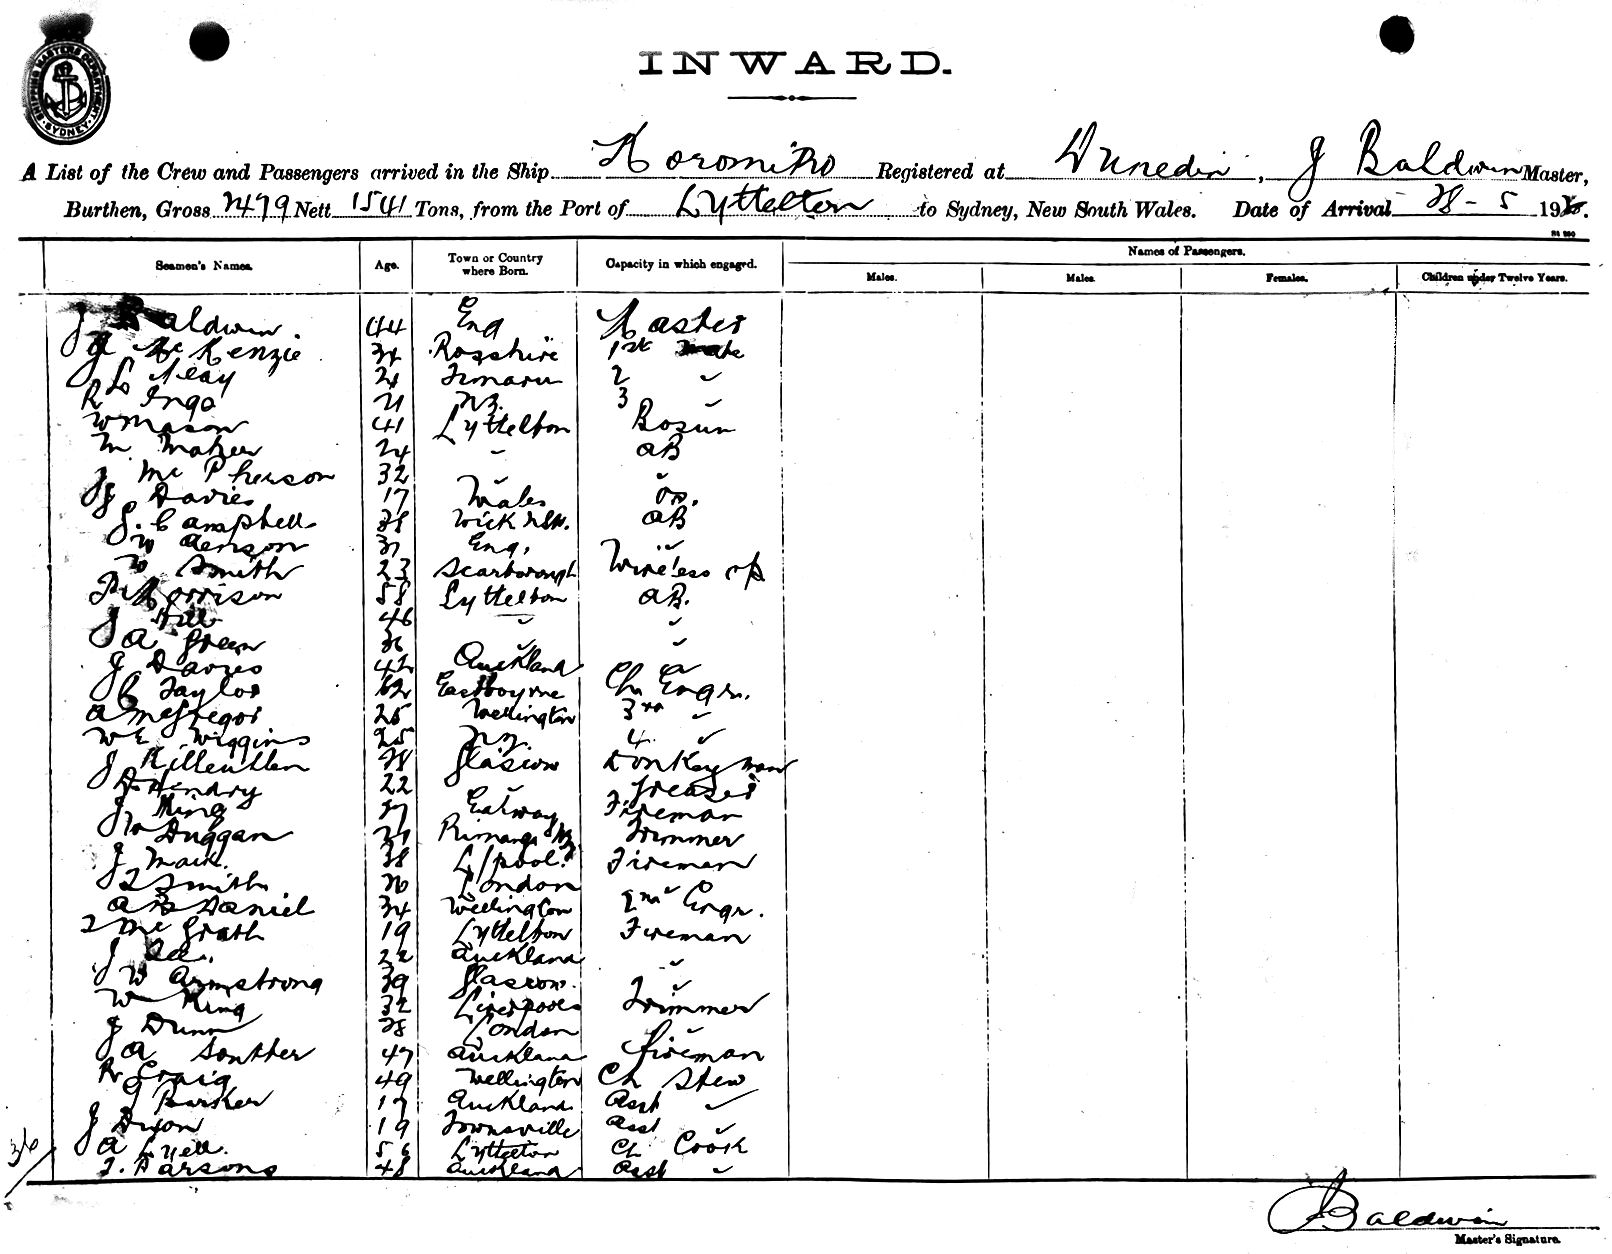 SHIPPING MASTERS DEPARTMENT SYDNEY
INWARD.
A List of the Crew and Passengers arrived in the Ship Koromiko Registered at Dunedin, J Baldwin Master,
Burthen, Gross 2479 Nett 1541 Tons, from the Port of Lyttelton to Sydney, New South Wales. Date of Arrival 28 - 5 19
Seamen's Names. Age. Town or Country where Born. Capacity in which engaged. Names of Passengers.
Males. Males. Females. Children under Twelve Years.
J Baldwin. 44 Eng Master
J McKenzie 34 Rosshire 1st Mate
L Neay 24 Timaru 2 "
R Ingo 21 N.Z. 3 "
W Mason 41 Lyttelton Bosun
M Maher 24 " AB
J McPherson 32 " "
J Davies 17 Wales OS.
J. Campbell 38 Wick AB
W Aenson 31 Eng. "
W Smith 23 Scarborough Wireless op
P Morrison 58 Lyttelton AB.
J Hill 46 " "
A Green 36 " "
J Davies 42 Auckland "
C Taylor 62 Eastbourne Ch Engr.
A McGregor 25 Wellington 3rd "
W E Wiggins 25 N.Z. 4. "
J Killeutlen 38 Glasgow Donkeyman
Hendry 22 " Greaser
J King 37 Galway Fireman
W Duggan 27 Trimmer
J Mack. 38 L/pool. Fireman
T Smith 26 London "
A B Daniel 34 Wellington 2nd Engr.
T McGrath 19 Lyttelton Fireman
J 22 Auckland "
W Armstrong 39 Glasgow. "
W King 32 Liverpool Trimmer
J Dunn 28 London "
A Souther 47 Auckland Fireman
R Craig 49 Wellington Ch Stew
J Barker 17 Auckland Asst "
J Dixon 19 Townsville Asst "
A Lyell. 56 Lyttelton Ch Cook
T. Parsons 48 Auckland Asst "
36
J Baldwin
Master's Signature.